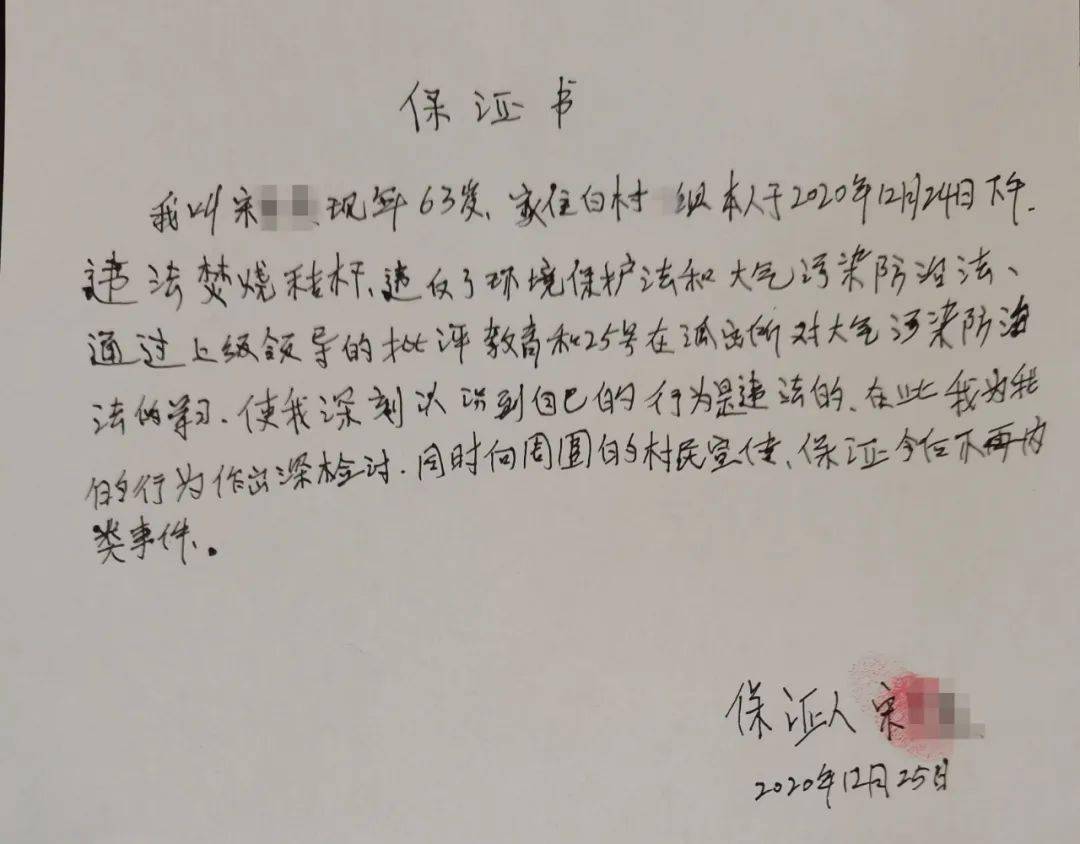 保证书
我叫宋 现年63岁、家住白村 组本人于2020年12月24日下午.
违法焚烧秸杆、违反了环境保护法和大气污染防治法、
通过上级领导的批评教育和25号在派出所对大气污染防治
法的学习.使我深刻认识到自己的行为是违法的、在此我为我
的行为作出深检讨.同时向周围的村民宣传、保证今后不再
类事件。
保证人 宋
2020年12月25日